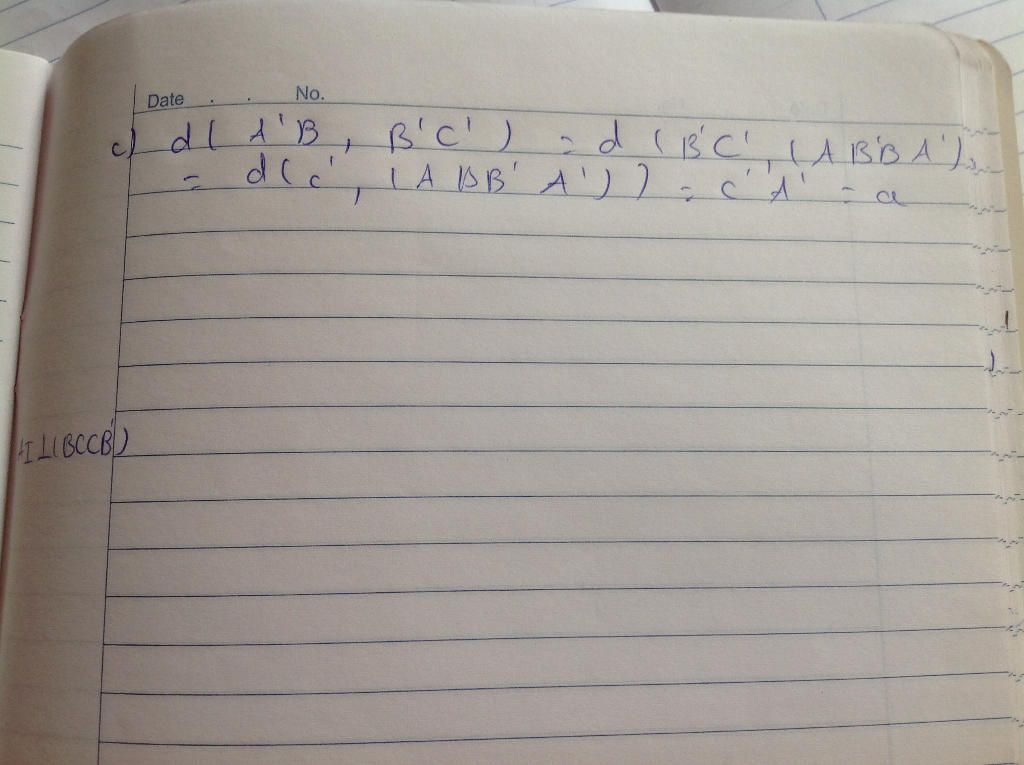 Date . . No.
c) d( A'B , B'C' ) = d (B'C', (A B'B A'))
= d(C', (A BB' A')) = C'A' = a
AI⊥(BCCB')